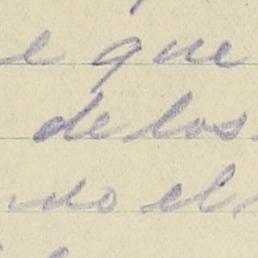 e que
de los
ndo el